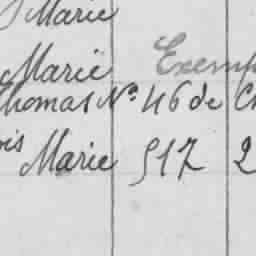 Marie
Marie Exemp
Thomas No. 46 de C
ois Marie 517 2